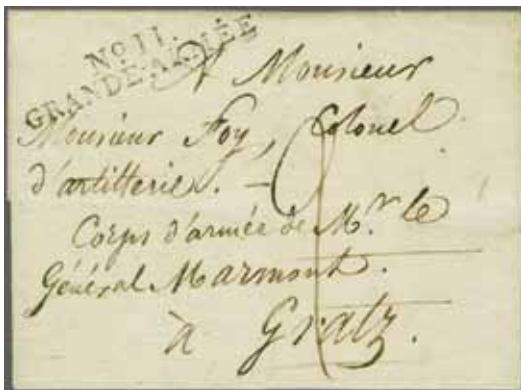 No. 11.
GRANDE-ARMÉE
A Monsieur
Monsieur Foy, Colonel
d'artillerie.
Corps d'armée de Mr. le
Général Marmont.
à Gratz.